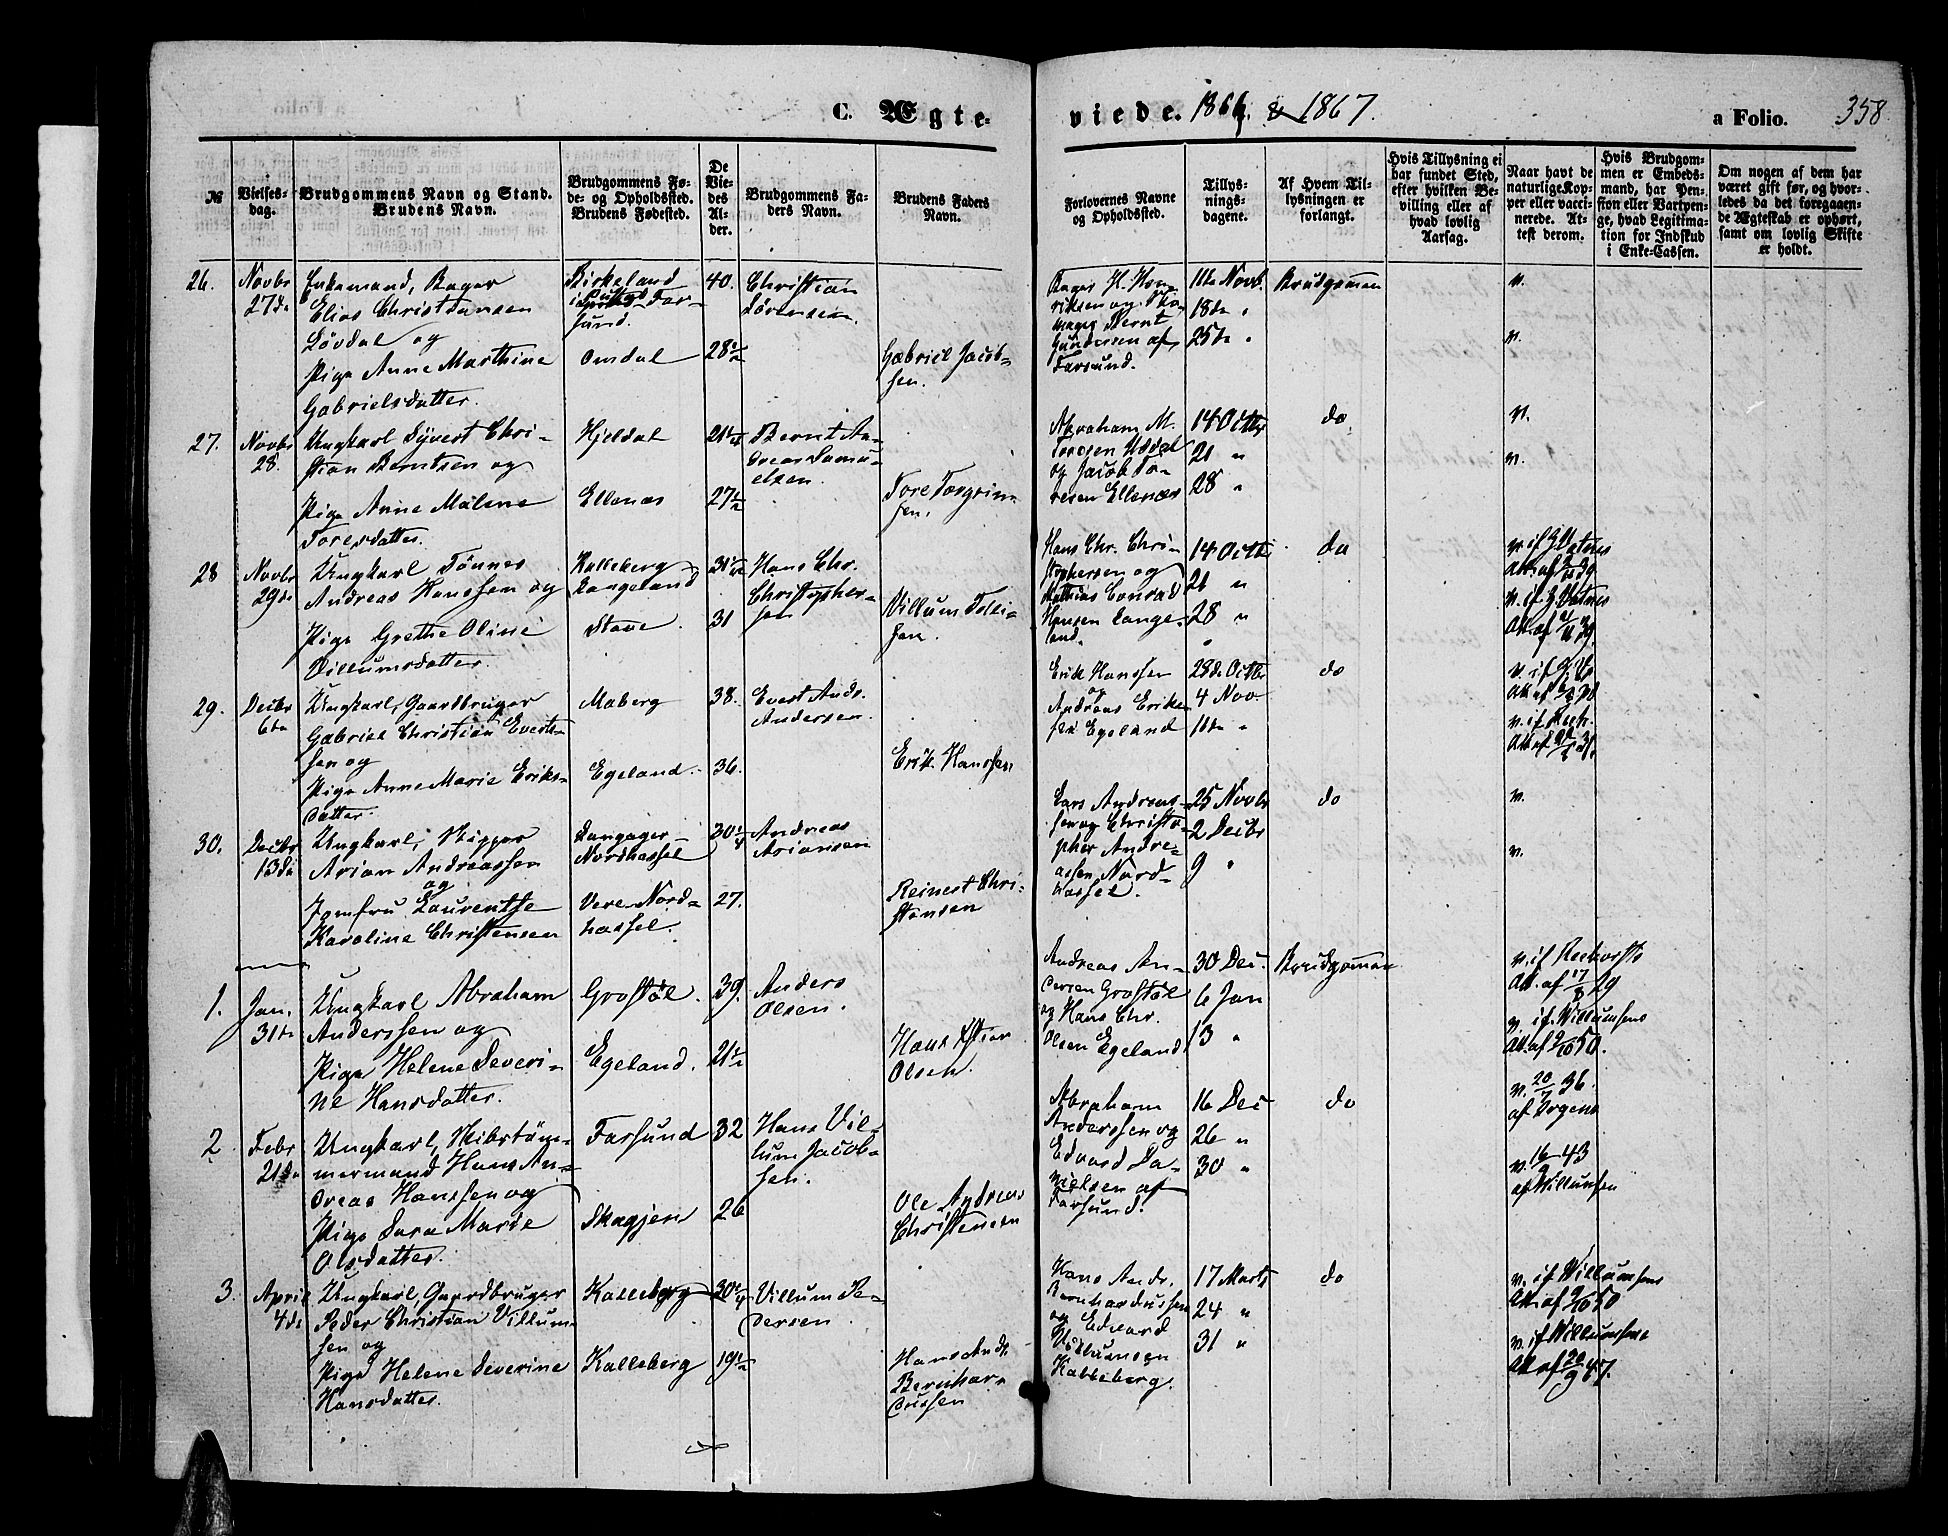 C. Ægte-
viede. 1866 & 1867.
a Folio. 358
№
Vielses-
dag.
Brudgommens Navn og Stand.
Brudens Navn.
Brudgommens Fø-
de- og Opholdssted.
Brudens Fødested.
De
Vie-
des
Al-
der.
Brudgommens Fa-
ders Navn.
Brudens Faders
Navn.
Forlovernes Navne
og Opholdssted.
Tillys-
nings-
dagene.
Af Hvem Til-
lysningen er
forlangt.
Hvis Tillysning ei
har fundet Sted,
efter hvilken Be-
villing eller af
hvad lovlig
Aarsag.
Naar havt de
naturlige Kop-
per eller vacci-
nerede. At-
test derom.
Hvis Brudgom-
men er Embeds-
mand, har Pen-
sion eller Vartpen-
ge, hvad Legitima-
tion for Indskud
i Enke-Cassen.
Om nogen af dem har
været gift før, og hvor-
ledes da det foregaaen-
de Ægteskab er ophørt,
samt om lovlig Skifte
er holdt.
26.
Novbr
27de
Enkemand, Bager
Elias Christiansen
Løvdal og
Pige Anne Marthine
Gabrielsdatter.
Birkeland
Far-
sund.
Omdal
40.
28½
Christian
Sørensen.
Gabriel Jacob-
sen.
Bager H. Hen-
riksen og Sko-
mager Bernt
Gundersen af
Farsund.
11te Novb.
18de "
25de "
Brudgommen
v.
v.
27.
Novbr
28.
Ungkarl Syvert Chri-
stian Berntsen og
Pige Anne Malene
Toresdatter.
Hjeldal
Ellenæs
21½
27½
Bernt An-
dreas Samu-
elsen.
Tore Torgrim-
sen.
Abraham M.
Toresen
og Jacob To-
resen Ellenæs
14 Octbr
21 "
28 "
do
v.
v.
28
Novbr
29de
Ungkarl Tønnes
Andreas Hanssen og
Pige Grethe Oline
Villumsdatter.
Kalleberg
Langeland
Stave.
31
Hans Chr.
Christopher-
sen
Villum Tolli-
sen.
Hans Chr. Chri-
stophersen og
Mathias Conrad
Hansen Lange-
land.
14 Octbr
21 "
28 "
do
29.
Decbr
6te
Ungkarl, Gaardbruger
Gabriel Christian Everts-
sen og
Pige Anne Marie Eriks-
datter.
Maberg
Egeland.
38.
36.
Evert Andr.
Andersen.
Erik Hanssen
Erik Hanssen
og
Andreas Erik-
sen Egeland
28de Octbr
4 Nov.
11te "
do
30.
Decbr
13de
Ungkarl, Skipper
Arian Andreassen
og
Jomfru Laurentse
Karoline Christensen
Langager
Nordhassel
Vere Nord-
hassel.
30¼
27.
Andreas
Ariansen
Reinert Chri-
stensen
Lars Andreas-
sen og Christo-
pher Andre-
assen Nord-
hassel.
25 Novbr
2 Decbr
9 "
do
v.
v.
1.
Jan.
31te
Ungkarl Abraham
Anderssen og
Pige Helene Severi-
ne Hansdatter.
Grostøl.
Egeland.
39.
21½
Anders
Olsen.
Hans Chr
Olsen.
Andreas An-
dersen Grostøl
og Hans Chr.
Olsen Egeland
30 Dec.
6 Jan
13 "
Brudgommen
v. if
Att. af 17/8 29
v. if. Willumsens
Att. af 2/10 50.
2
Febr
21de
Ungkarl, Skibstøm-
mermand Hans An-
dreas Hanssen og
Pige Sara Marie
Olsdatter.
Farsund
Skagjen
32
26
Hans Vil-
lum Jacob-
sen.
Ole Andreas
Christensen
Abraham
Anderssen og
Edvard Da-
nielsen af
Farsund.
16 Dec
26 "
30 "
do
v. 20/7 36.
af
v. 16/9 43
af Willumsen
3.
April
4de
Ungkarl, Gaardbruger
Peder Christian Villum-
sen og
Pige Helene Severine
Hansdatter.
Kalleberg
Kalleberg
30¼
19½
Villum Pe-
dersen.
Hans Andr.
Bernhar-
dussen
Hans Andr.
Bernhardussen
og Edvard
Villumsen
Kalleberg.
17 Marts
24 "
31 "
do
v. if Willumsens
Att. af 2/10 50
v. if Willumsens
Att af 20/9 47.